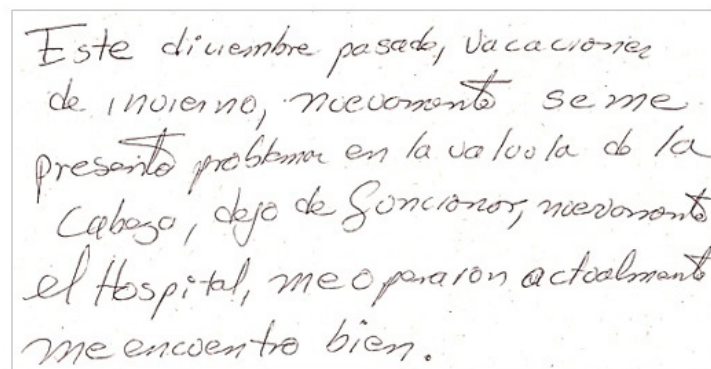 Este diciembre pasado, vacaciones
de invierno, nuevamente se me
presento problema en la valvula de la
Cabeza, dejo de funcionar, nuevamente
el Hospital, me operaron actualmente
me encuentro bien.